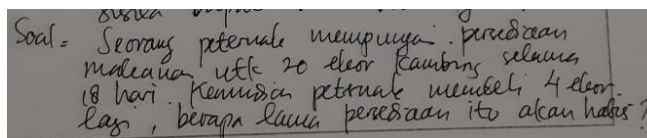 Soal = Seorang peternak mempunyai persediaan
makanan utk 20 ekor kambing selama
18 hari. Kemudian peternak membeli 4 ekor
lagi, berapa lama persediaan itu akan habis?